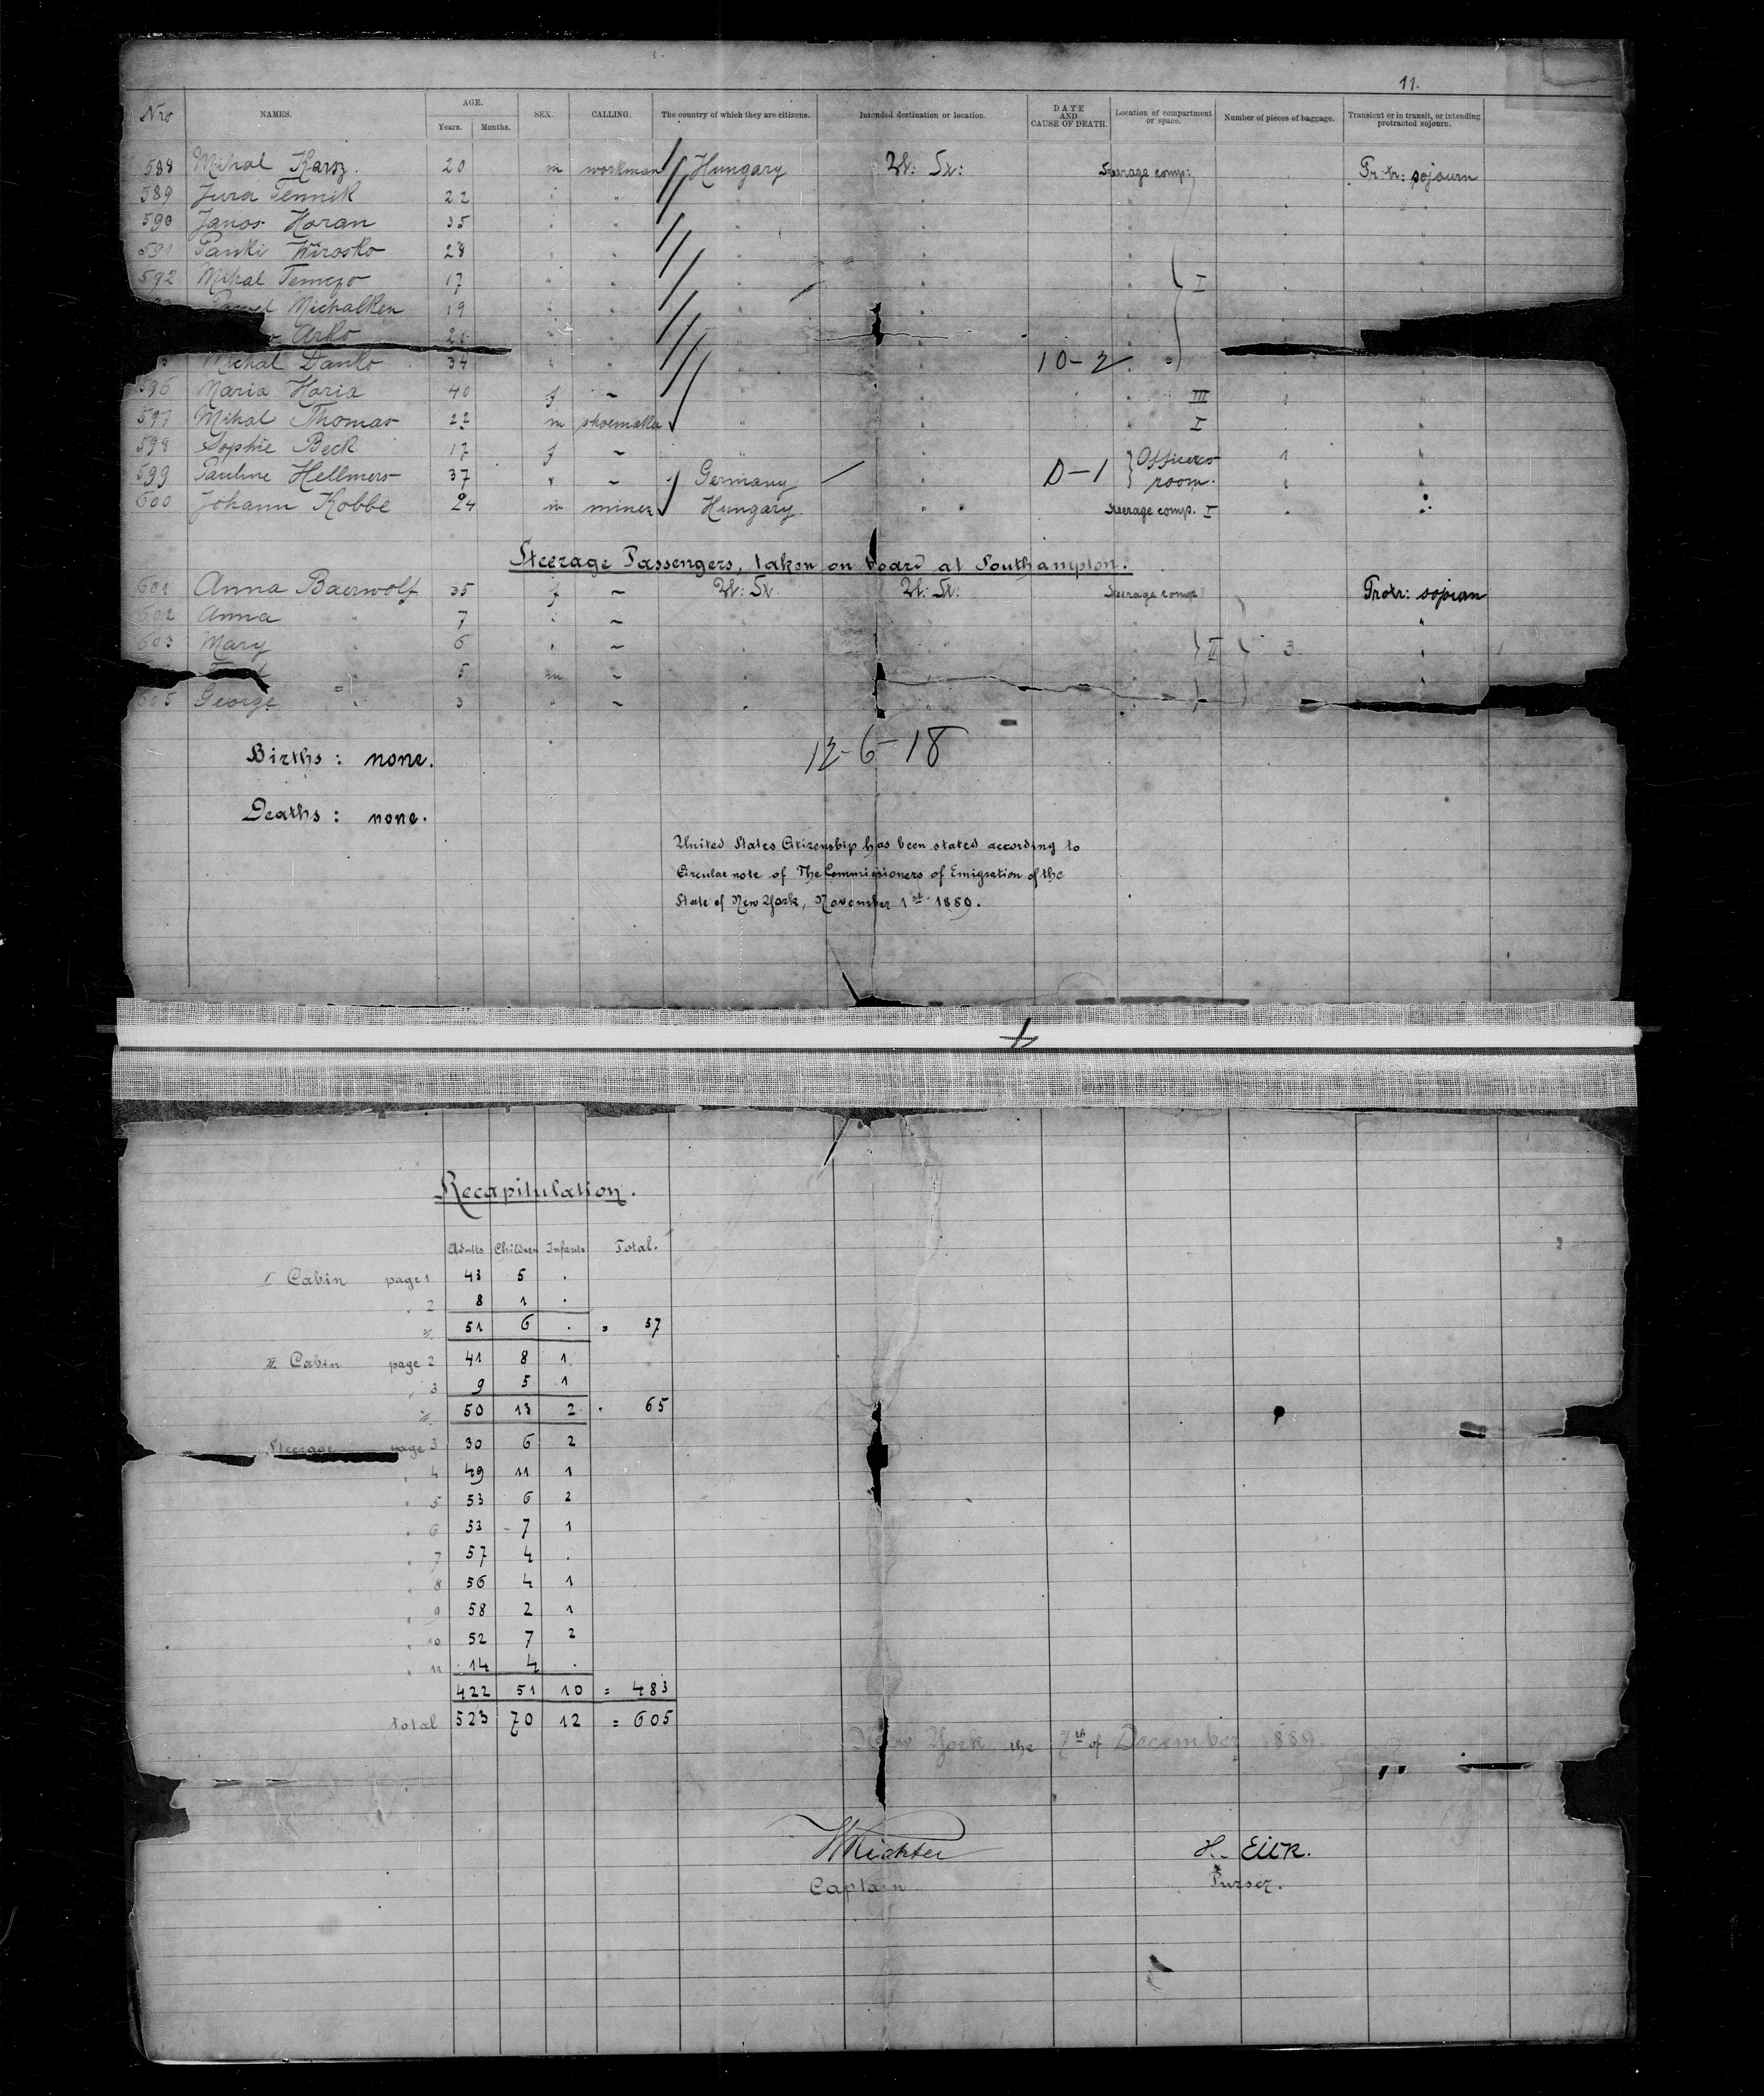 11.
Nro NAMES. AGE. Years. Months. SEX. CALLING. The country of which they are citizens. Intended destination or location. DATE AND CAUSE OF DEATH. Location of compartment or space. Number of pieces of baggage. Transient or in transit, or intending protracted sojourn.
588 Mihal 20 m workman Hungary U: St: Steerage comp: Protr: sojourn
589 Jura Tennik 22 " "
590 Janos Horan 35 " "
591 Wirosko 28 " "
592 Mihal 17 " " I
Michalken 19 " "
Arko
Michal Danko 34 " " 10-2
596 Maria Horia 40 f – " III 1 "
597 Mihal Thomas 22 m shoemaker " I "
598 Sophie Beck 17 f – " Officers 1 "
599 Pauline Hellmers 37 " – Germany D-1 room. "
600 Johann Kobbe 24 m miner Hungary " Steerage comp. I "
Steerage Passengers, taken on board at Southampton.
601 Anna Baerwolf 35 f – U: St. U: St: Steerage comp Protr: sojourn
602 Anna " 7 " – " "
603 Mary " 6 " – " II 3 "
5 m – " "
605 George " 3 " – "
12-6-18
Births : none.
Deaths : none.
United States Citizenship has been stated according to
Circular note of The Commissioners of Emigration of the
State of New York, November 1st 1889.
Recapitulation.
Adults Children Infants Total.
I Cabin page 1 43 5 .
" 2 8 1 .
51 6 . = 57
II Cabin page 2 41 8 1
" 3 9 5 1
50 13 2 = 65
Steerage page 3 30 6 2
" 4 49 11 1
" 5 53 6 2
" 6 53 7 1
" 7 57 4 .
" 8 56 4 1
" 9 58 2 1
" 10 52 7 2
" 11 14 4 .
422 51 10 = 483
total 523 70 12 = 605
New York, the 7th of December 1889.
Richter H. Eilk.
Captain Purser.